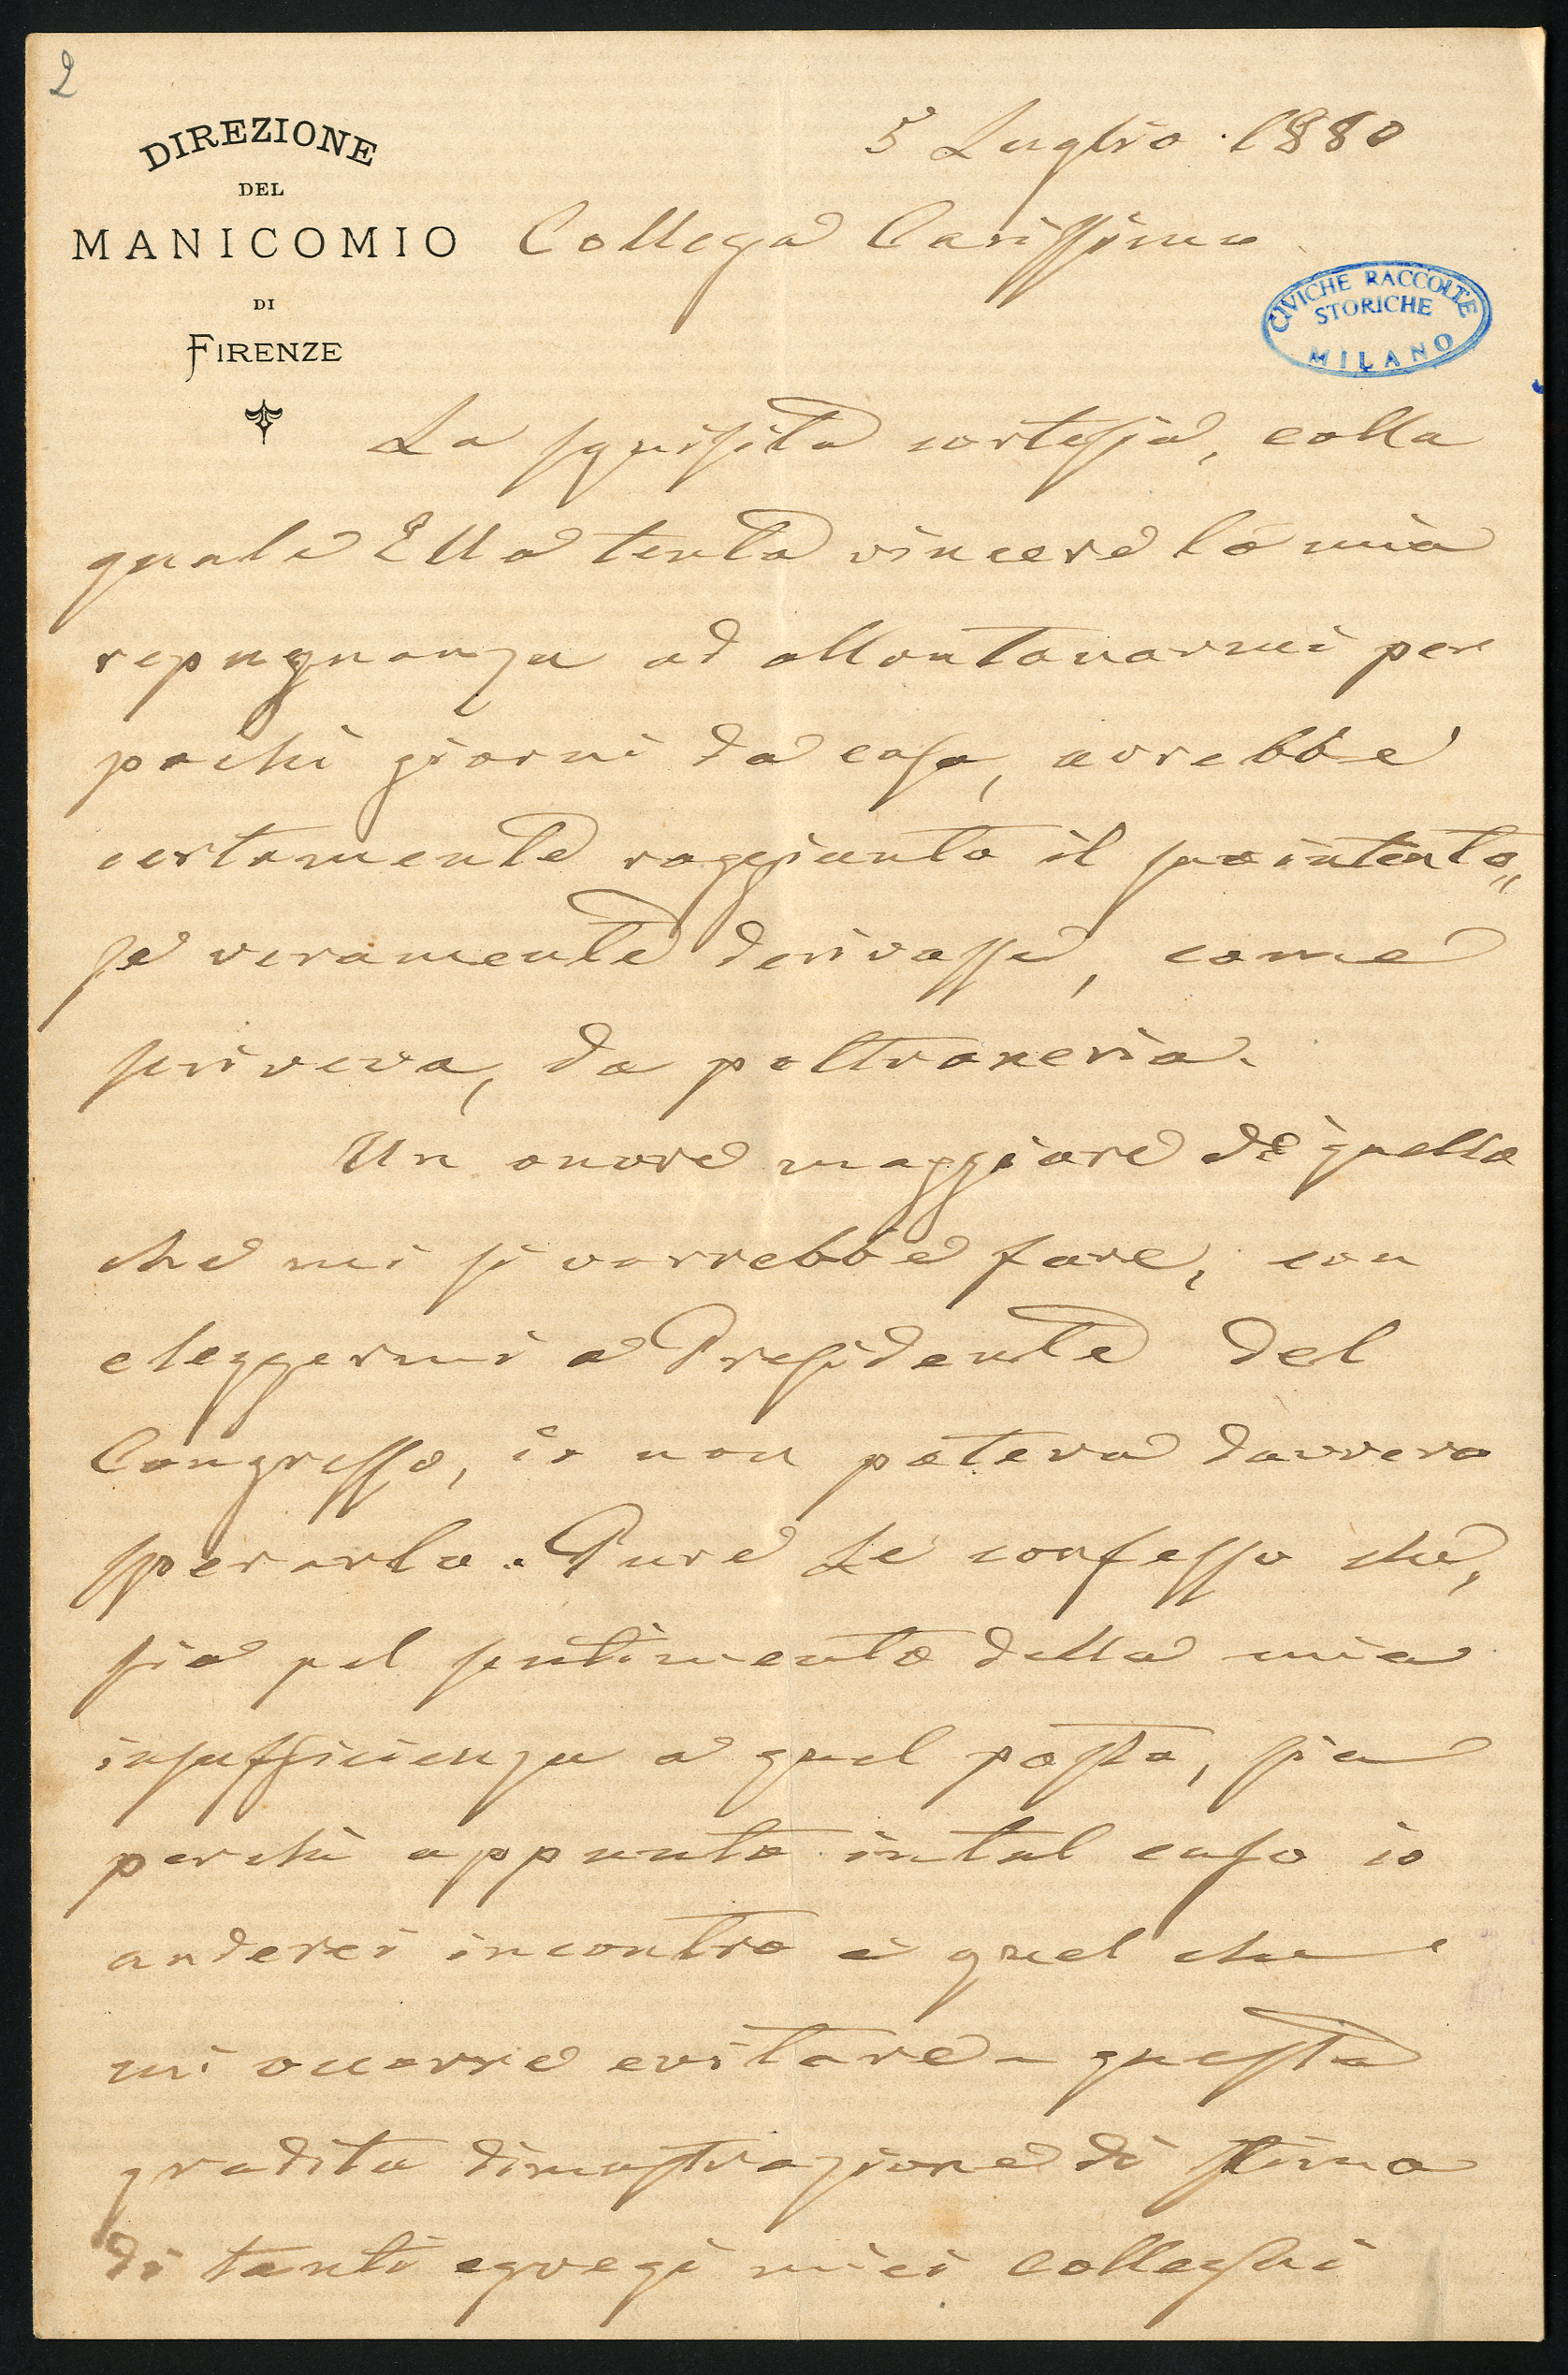 2
DIREZIONE
DEL
MANICOMIO
DI
FIRENZE
5 Luglio 1880
Collega Carissimo
CIVICHE RACCOLTE
STORICHE
MILANO
La squisita cortesia, colla
quale Ella tenta vincere la mia
repugnanza ad allontanarmi per
pochi giorni da casa, avrebbe
certamente raggiunto il suo intento,
se veramente derivasse, come
scriveva, da poltroneria.
Un onore maggiore di quello
che mi si vorrebbe fare, con
eleggermi a Presidente del
Congresso, io non poteva davvero
sperarlo. Pure Le confesso che,
sia pel sentimento della mia
insufficienza a quel posto, sia
perchè appunto in tal caso io
anderei incontro a quel che
mi occorre evitare - questa
gradita dimostrazione di stima
di tanti egregi miei colleghi